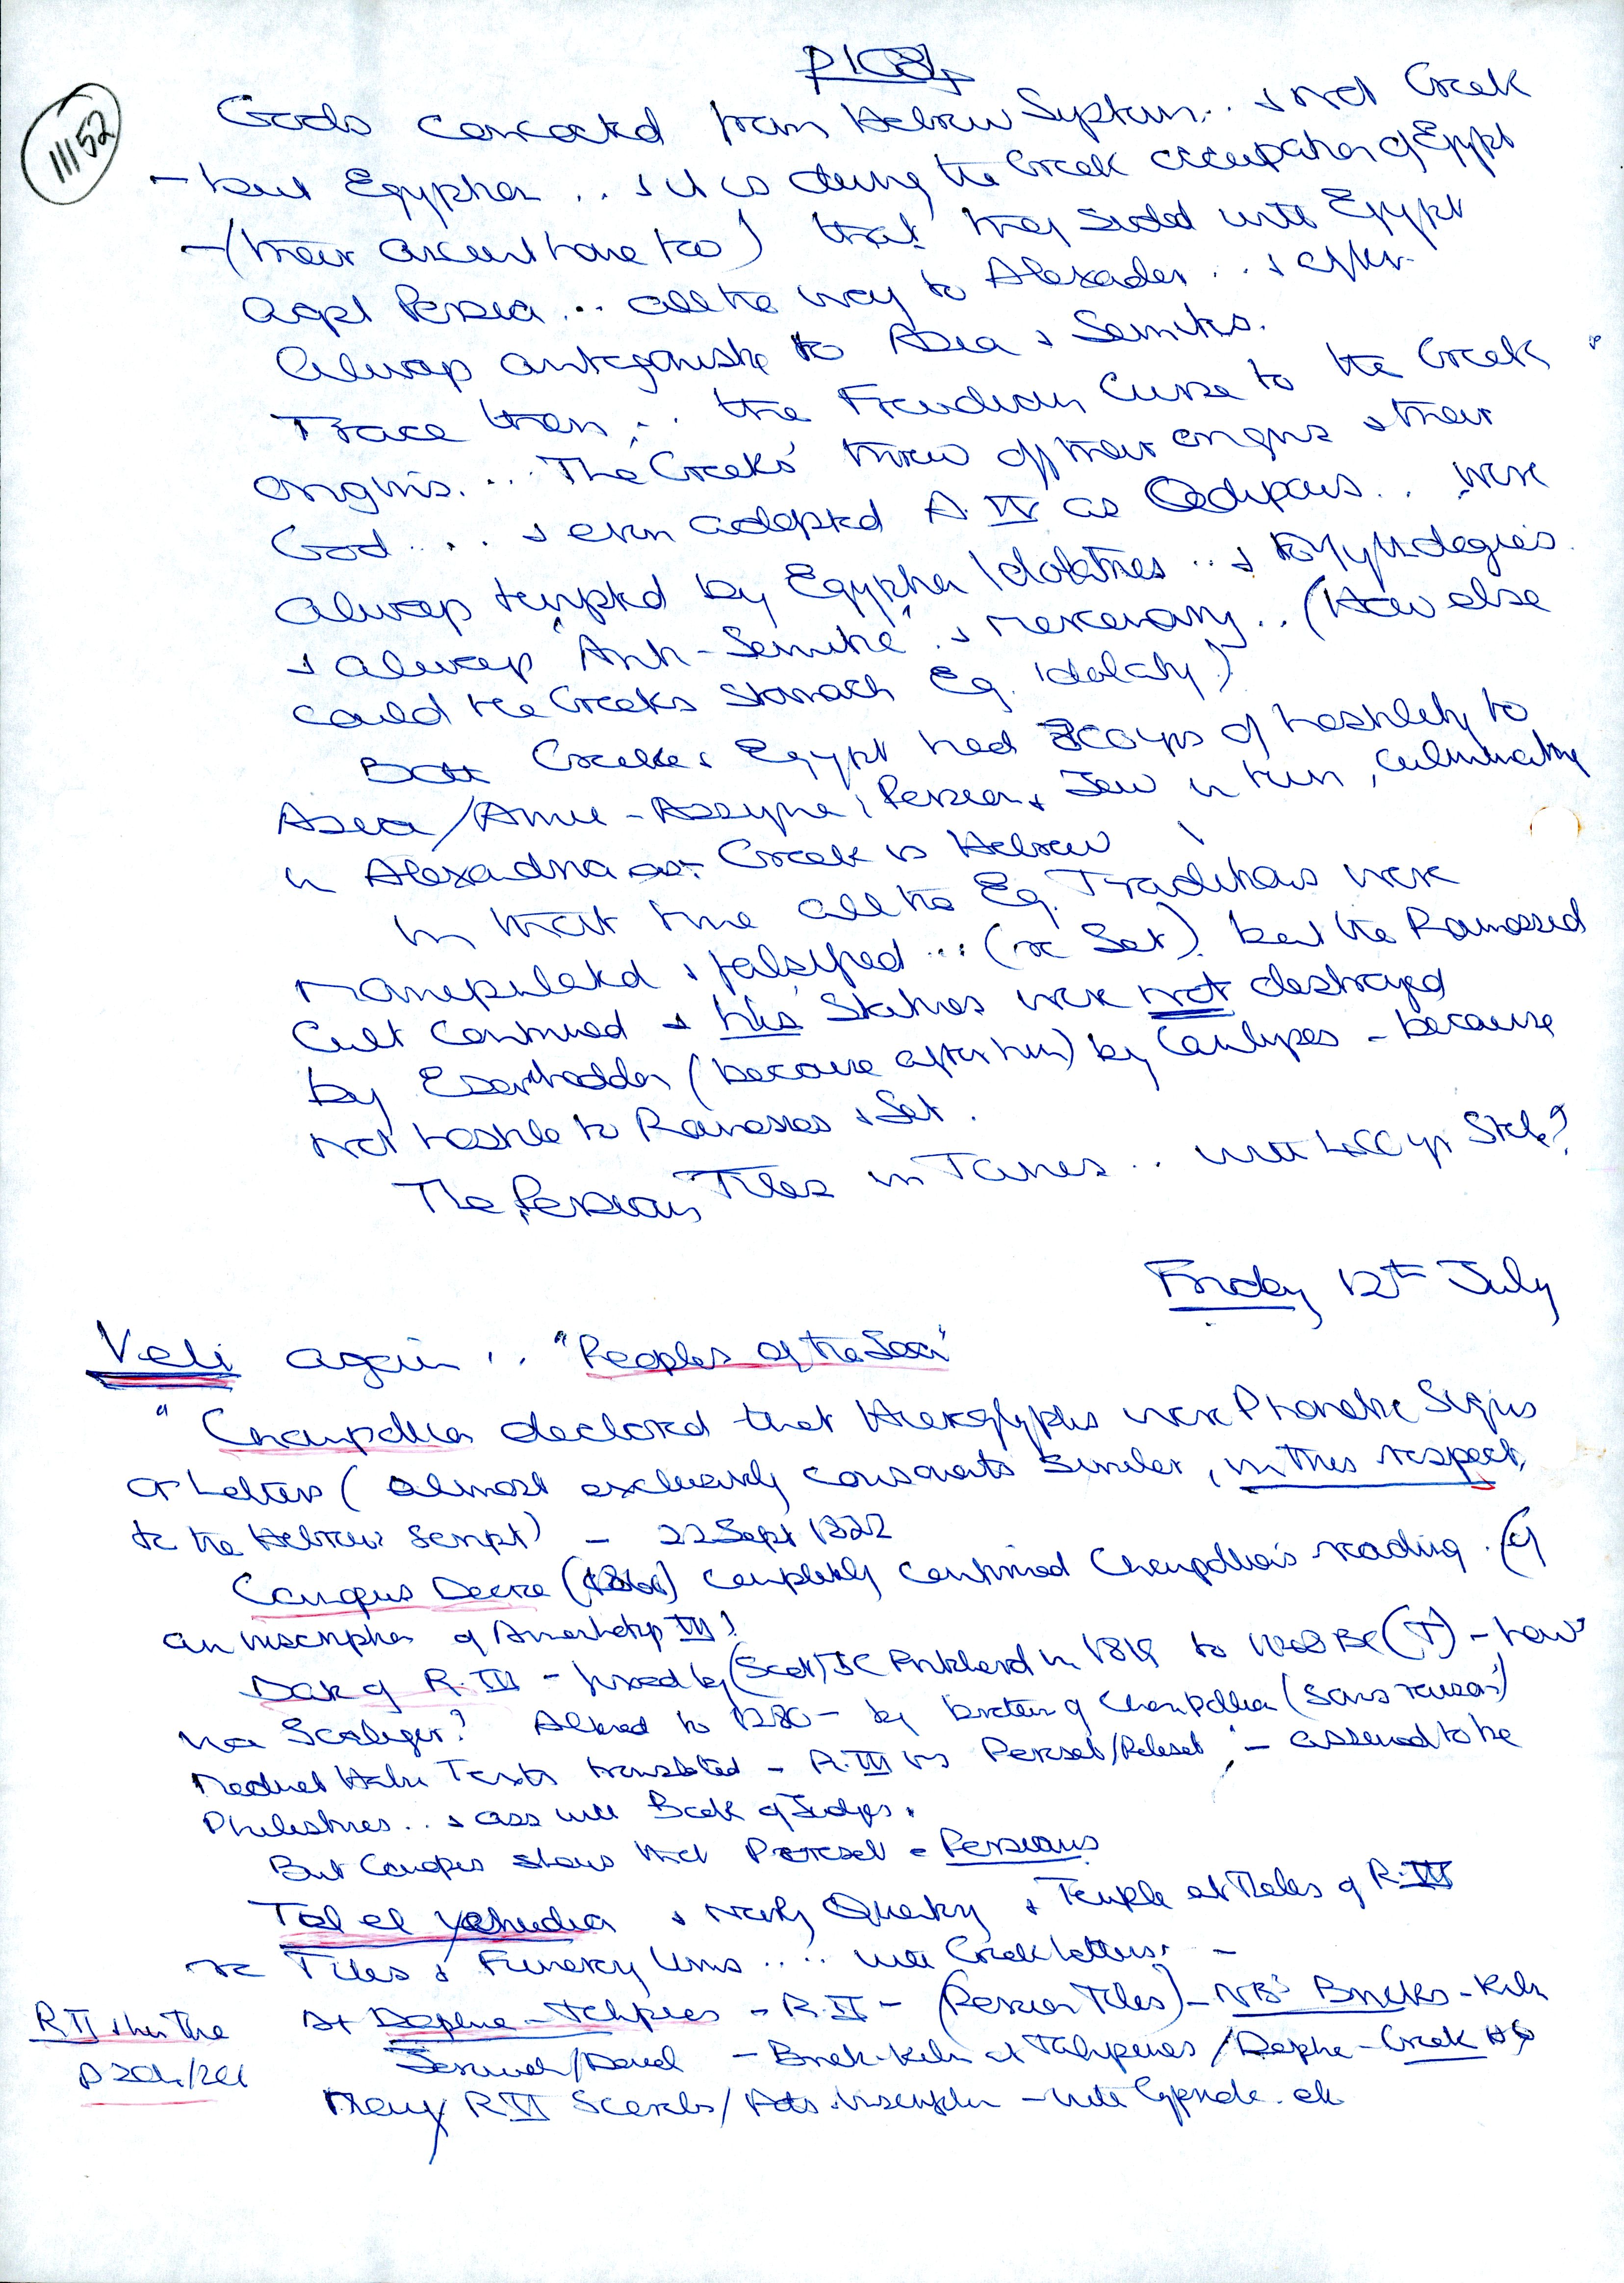 11152
Gods concocted from Hebrew System.. & not Greek
- but Egyptian .. & it is during the Greek occupation of Egypt
- (their ancient home too) that they sided with Egypt
agst Persia ... all the way to Alexander .. & after.
Always antagonistic to Asia & Semites.
Trace then .. the Freudian Curse to the Greek
origins... The 'Greeks' threw off their origins & their
God .... & even adopted A. IV as Oedipus .. were
always tempted by Egyptian Idolatries .. & to Mythologies.
& always "Anti-Semitic" & mercenary .. (How else
could the Greeks stomach Eg. idolatry?)
Both Greeks & Egypt had 300 yrs of hostility to
Asia / - Assyria, Persian & Jew in turn, culminating
in Alexandria as Greek vs Hebrew
In that time all the Eg. Traditions were
manipulated & falsified ... (re Set) but the Ramessid
Cult continued & his Statues were not destroyed
by Esarhaddon (because after him) by Cambyses - because
not hostile to Ramesses & Set.
The Persian Tiles in Tanis .. with 400 yr Stele?
Friday 12th July
Veli again .. "Peoples of the Sea"
"Champollion declared that Hieroglyphs were Phonetic Signs
or Letters (almost exclusively consonants similar, in this respect,
to the Hebrew Script) - 22 Sept 1822
Canopus Decree completely confirmed Champollion's reading. (of
an inscription of Amenhotep III?
Date of R. III - fixed by (Scot) JC Prichard in 1819 to BC (T) - how?
via Scaliger? Altered to 1280 - by brother of Champollion (sans raison)
Medinet Habu Texts translated - R. III vs Pereset/Peleset - assumed to be
Philistines .. & ass with Book of Judges.
But Canopus shows that Pereset = Persians
Tel el Yahudia & Nav Quarry & Temple at Thebes of R. III
re Tiles & Funerary Urns .... with Greek letters -
R II & her Tire
p 204/201
At Daphne - Tahpnes - R. II - (Persian Tiles) - NB's Bricks - Kiln
Jeremiah/ - Brick-kiln at Tahpenes / Daphne - Greek
Many R II Scarabs / inscription - with Cypriote. etc